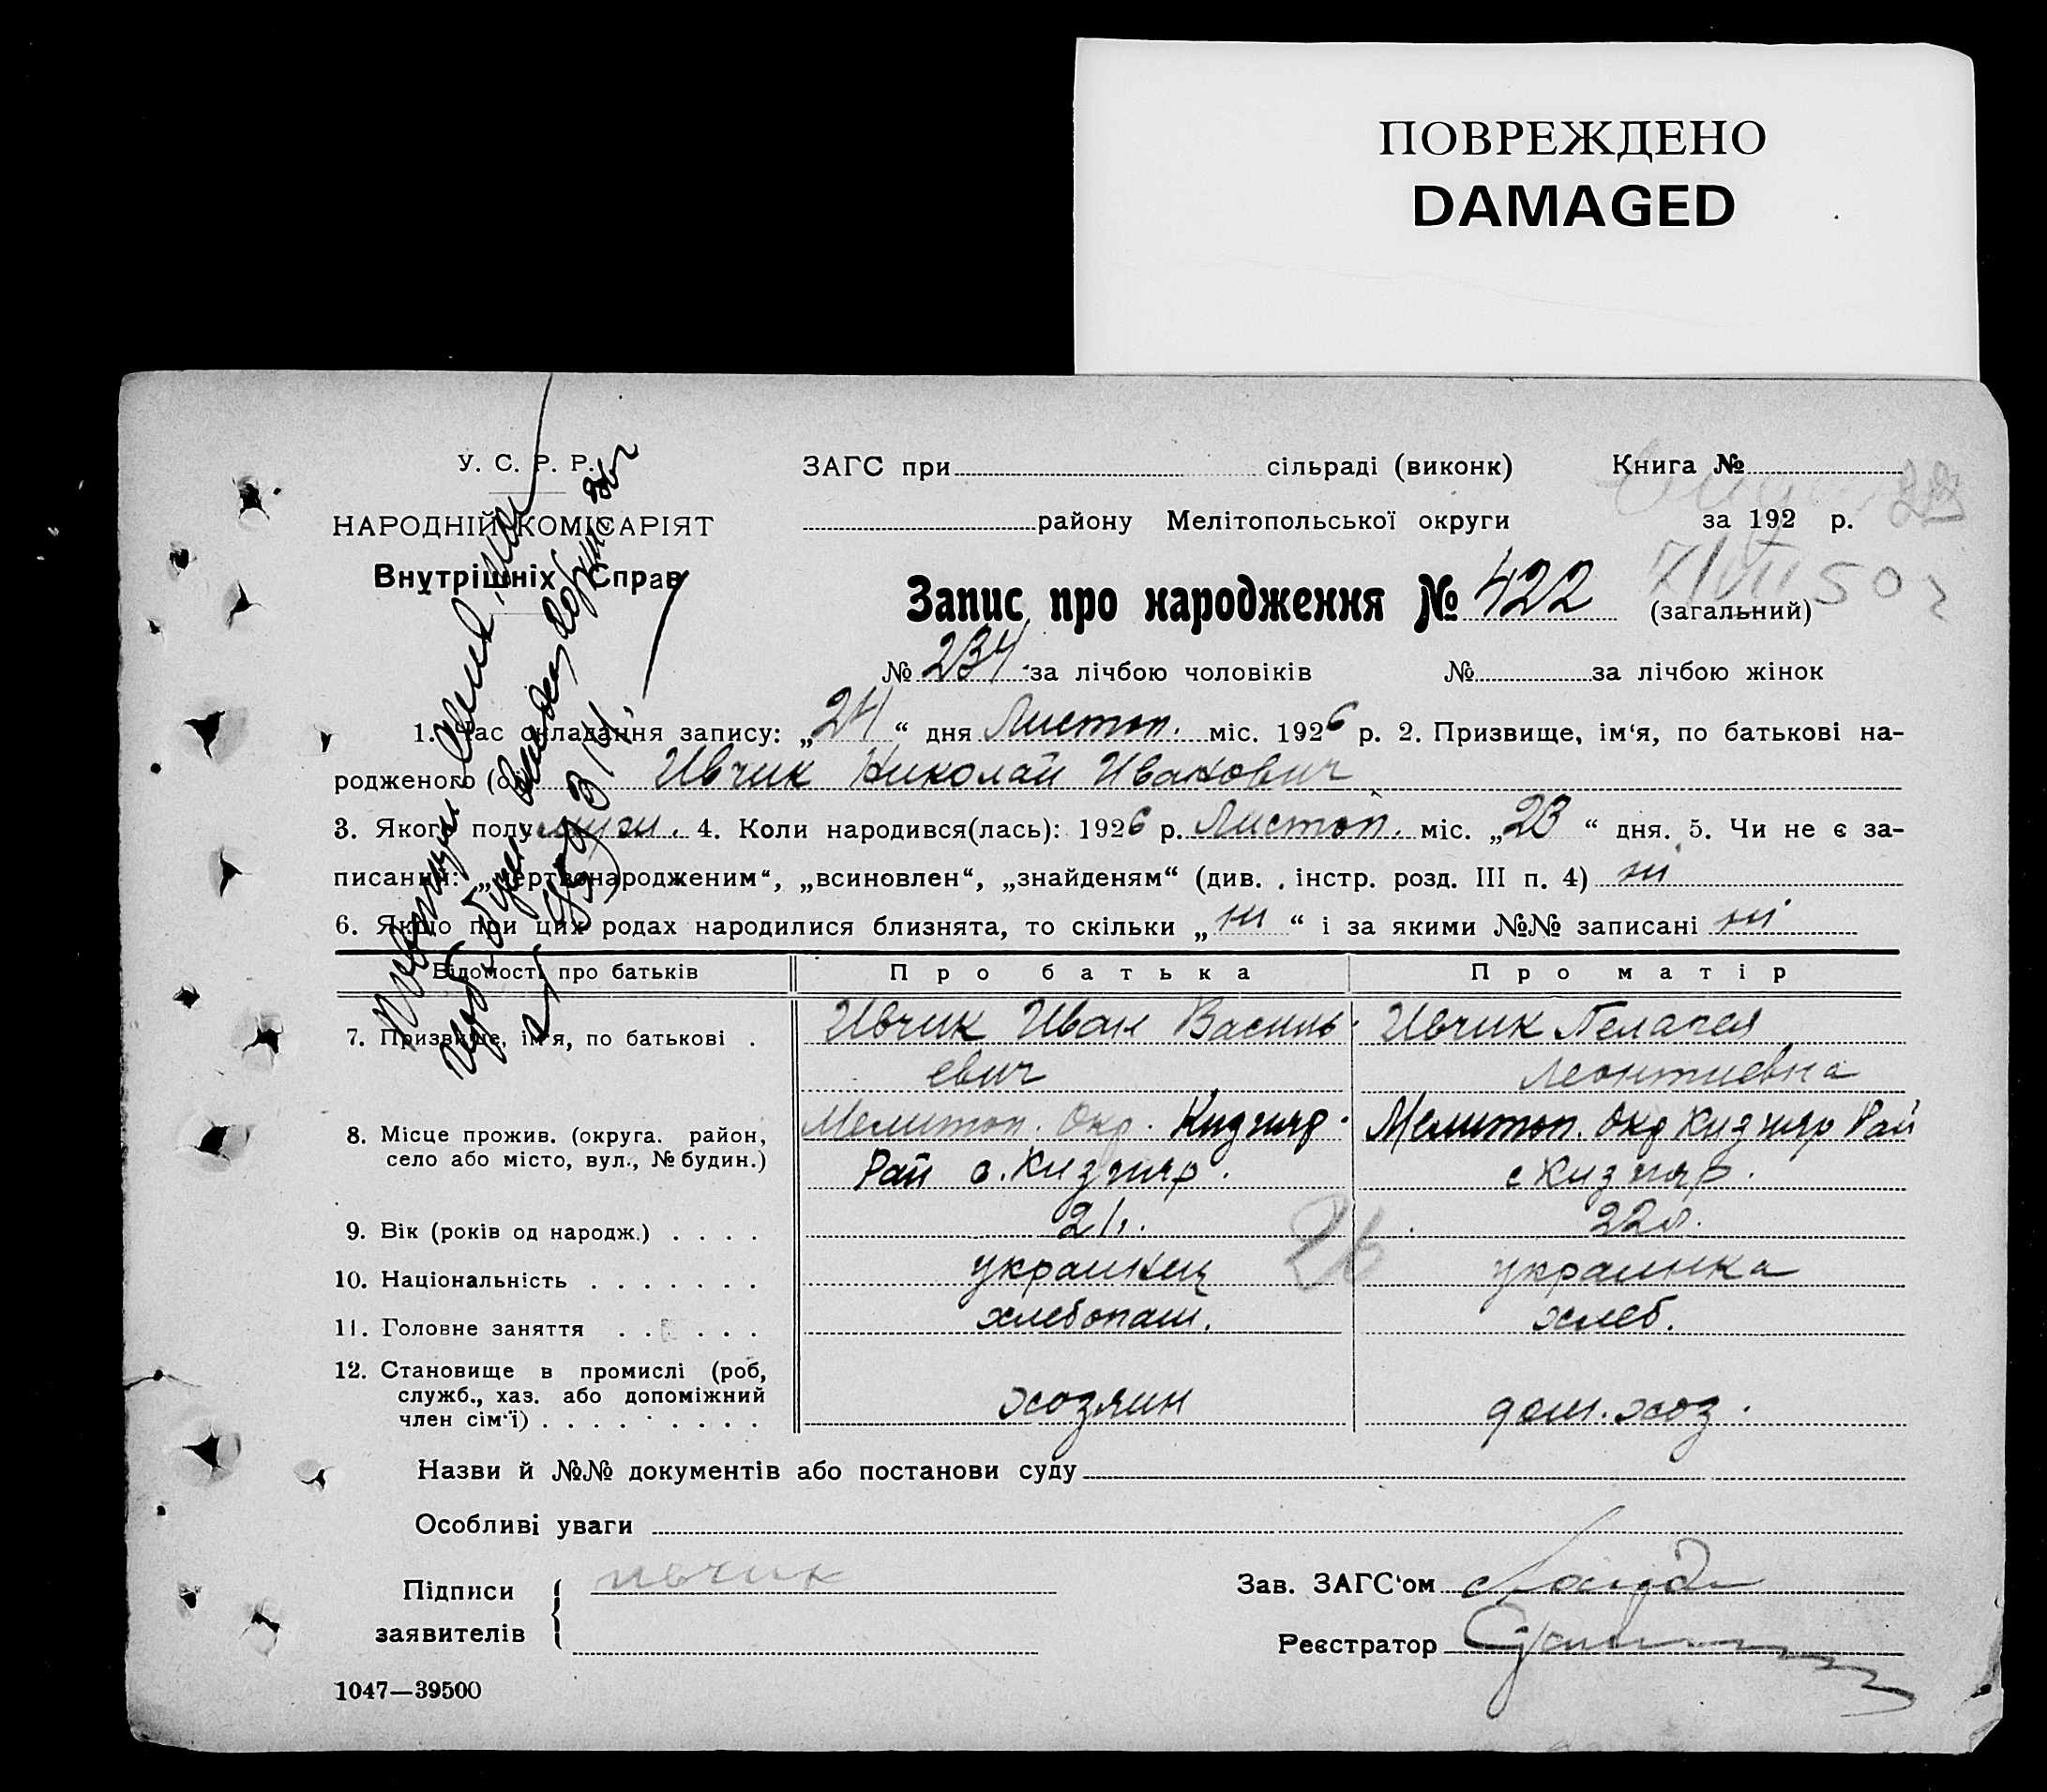 ПОВРЕЖДЕНО
DAMAGED
У. С. Р. Р.
НАРОДНІЙ КОМІСАРІЯТ
Внутрішніх Справ
ЗАГС при сільраді (виконк) Книга №
району Мелітопольської округи за 192 р.
Запис про народження № 422 (загальний)
№ 234 за лічбою чоловіків № за лічбою жінок
1. Час складання запису: „24“ дня Листоп. міс. 1926 р. 2. Призвище, ім‘я, по батькові на-
родженого (ої) Ивчик Николай Иванович
3. Якого полу 4. Коли народився(лась): 1926 р. Листоп. міс. „23“ дня. 5. Чи не є за-
писаний: „мертвонародженим“, „всиновлен“, „знайденям“ (див. інстр. розд. III п. 4) ні
6. Якщо при цих родах народилися близнята, то скільки „ні“ і за якими №№ записані ні
Відомості про батьків Про батька Про матір
7. Призвище, ім‘я, по батькові . Ивчик Иван Василь Ивчик Пелагея
евич Леонтиевна
8. Місце прожив. (округа. район, Мелитоп. Окр. Кизияр Мелитоп. Окр Кизияр Рай
село або місто, вул., № будин.) Рай с. Кизияр. с Кизияр.
9. Вік (років од народж.) . . . . 21 22
10. Національність . . . . . . . украинец украинка
11. Головне заняття . . . . . хлебопаш. хлеб.
12. Становище в промислі (роб,
служб., хаз. або допоміжний хозяин дом. хоз.
член сім‘ї) . . . . . . . . .
Назви й №№ документів або постанови суду
Особливі уваги
Підписи ивчик Зав. ЗАГС‘ом
заявителів Реєстратор
1047—39500